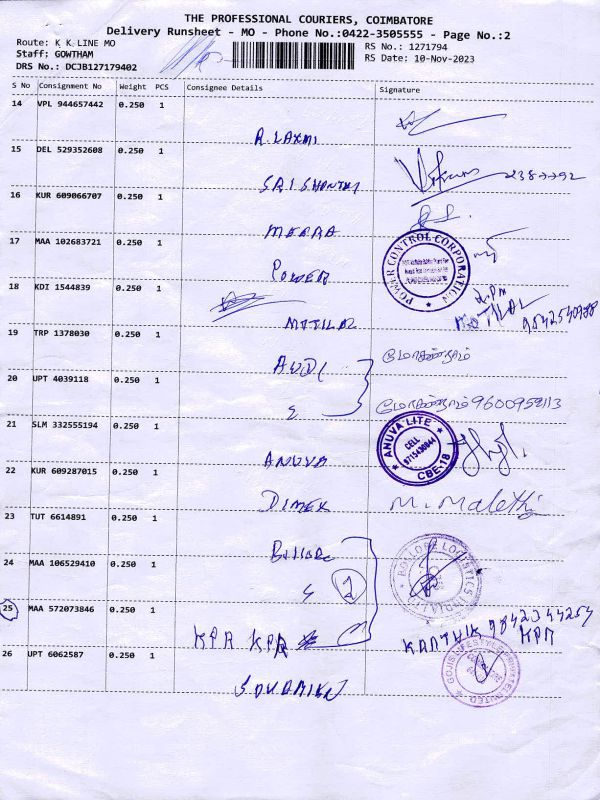 THE PROFESSIONAL COURIERS, COIMBATORE
Delivery Runsheet - MO - Phone No.:0422-3505555 - Page No.:2
Route: K K LINE MO
RS No.: 1271794
Staff: GOWTHAM
RS Date: 10-Nov-2023
DRS No.: DCJB127179402
S No Consignment No Weight PCS Consignee Details Signature
14 VPL 944657442 0.250 1
R. LAXMI
15 DEL 529352608 0.250 1
SRI SHANTHI
16 KUR 609066707 0.250 1
MEERA
17 MAA 102683721 0.250 1
POWER
POWER CONTROL CORPORATION
18 KDI 1544839 0.250 1
MOTILAL
9842540988
19 TRP 1378030 0.250 1
AUDI
20 UPT 4039118 0.250 1
9600959113
21 SLM 332555194 0.250 1
ANUVA
ANUVA LITE
CELL
CBE-18
22 KUR 609287015 0.250 1
DIMEX
M. Malethi
23 TUT 6614891 0.250 1
24 MAA 106529410 0.250 1
2
25 MAA 572073846 0.250 1
KPR KPR
KARTHIK 9842344254
KPR
26 UPT 6062587 0.250 1